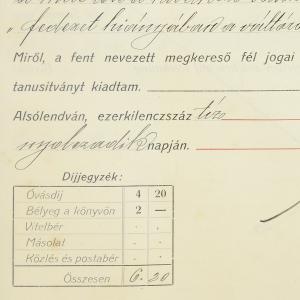 „ fedezet hiányában a váltó
Miről, a fent nevezett megkereső fél jogai
tanusítványt kiadtam.
Alsólendván, ezerkilenczszáz tíz
napján.
Díjjegyzék:
Óvásdíj 4 20
Bélyeg a könyvön 2 —
Vitelbér . .
Másolat . .
Közlés és postabér . .
Összesen 6. 20